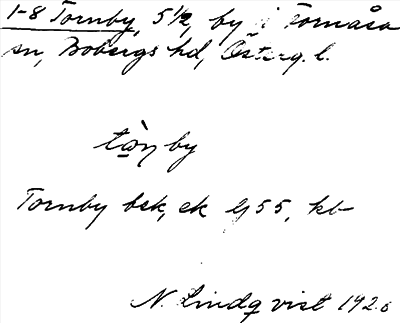 1-8 Tornby, 5 1/2, by i Fornåsa
sn, Bobergs hd, Österg. l.
tòn by
Tornby bsk, ek 2/55, kb
N. Lindqvist 1926